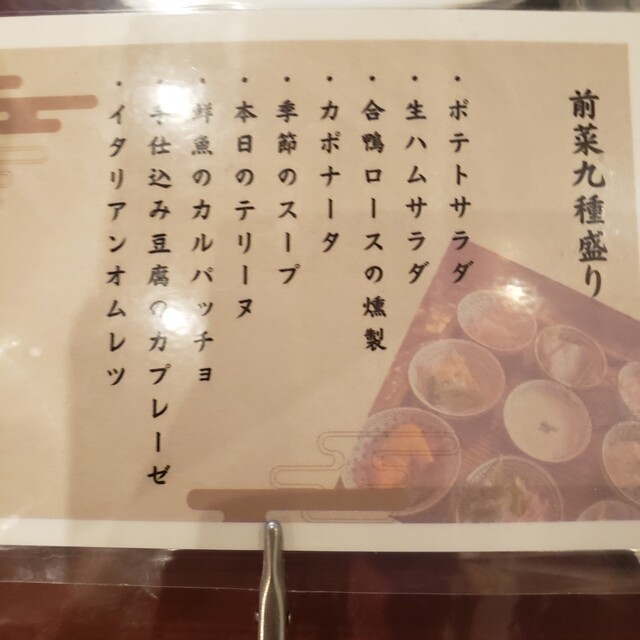 前菜九種盛り
・ポテトサラダ
・生ハムサラダ
・合鴨ロースの燻製
・カポナータ
・季節のスープ
・本日のテリーヌ
・鮮魚のカルパッチョ
・手仕込み豆腐のカプレーゼ
・イタリアンオムレツ